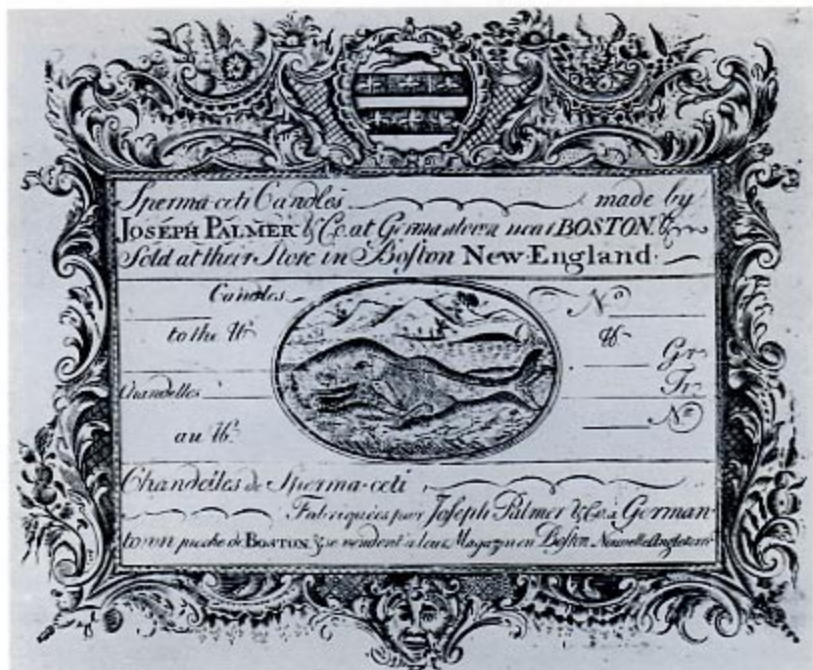 Sperma-ceti Candles made by
JOSEPH PALMER & Co. at Germantown near BOSTON &
Sold at their Store in Boston New-England.
Candles No
to the lb
lb
Gr
Chandelles Tr
No
au lb.
Chandelles de Sperma-ceti
Fabriquées par Joseph Palmer & Co. à German
town proche de BOSTON & se vendent a leur Magazin en Boston Nouvelle Angleterre